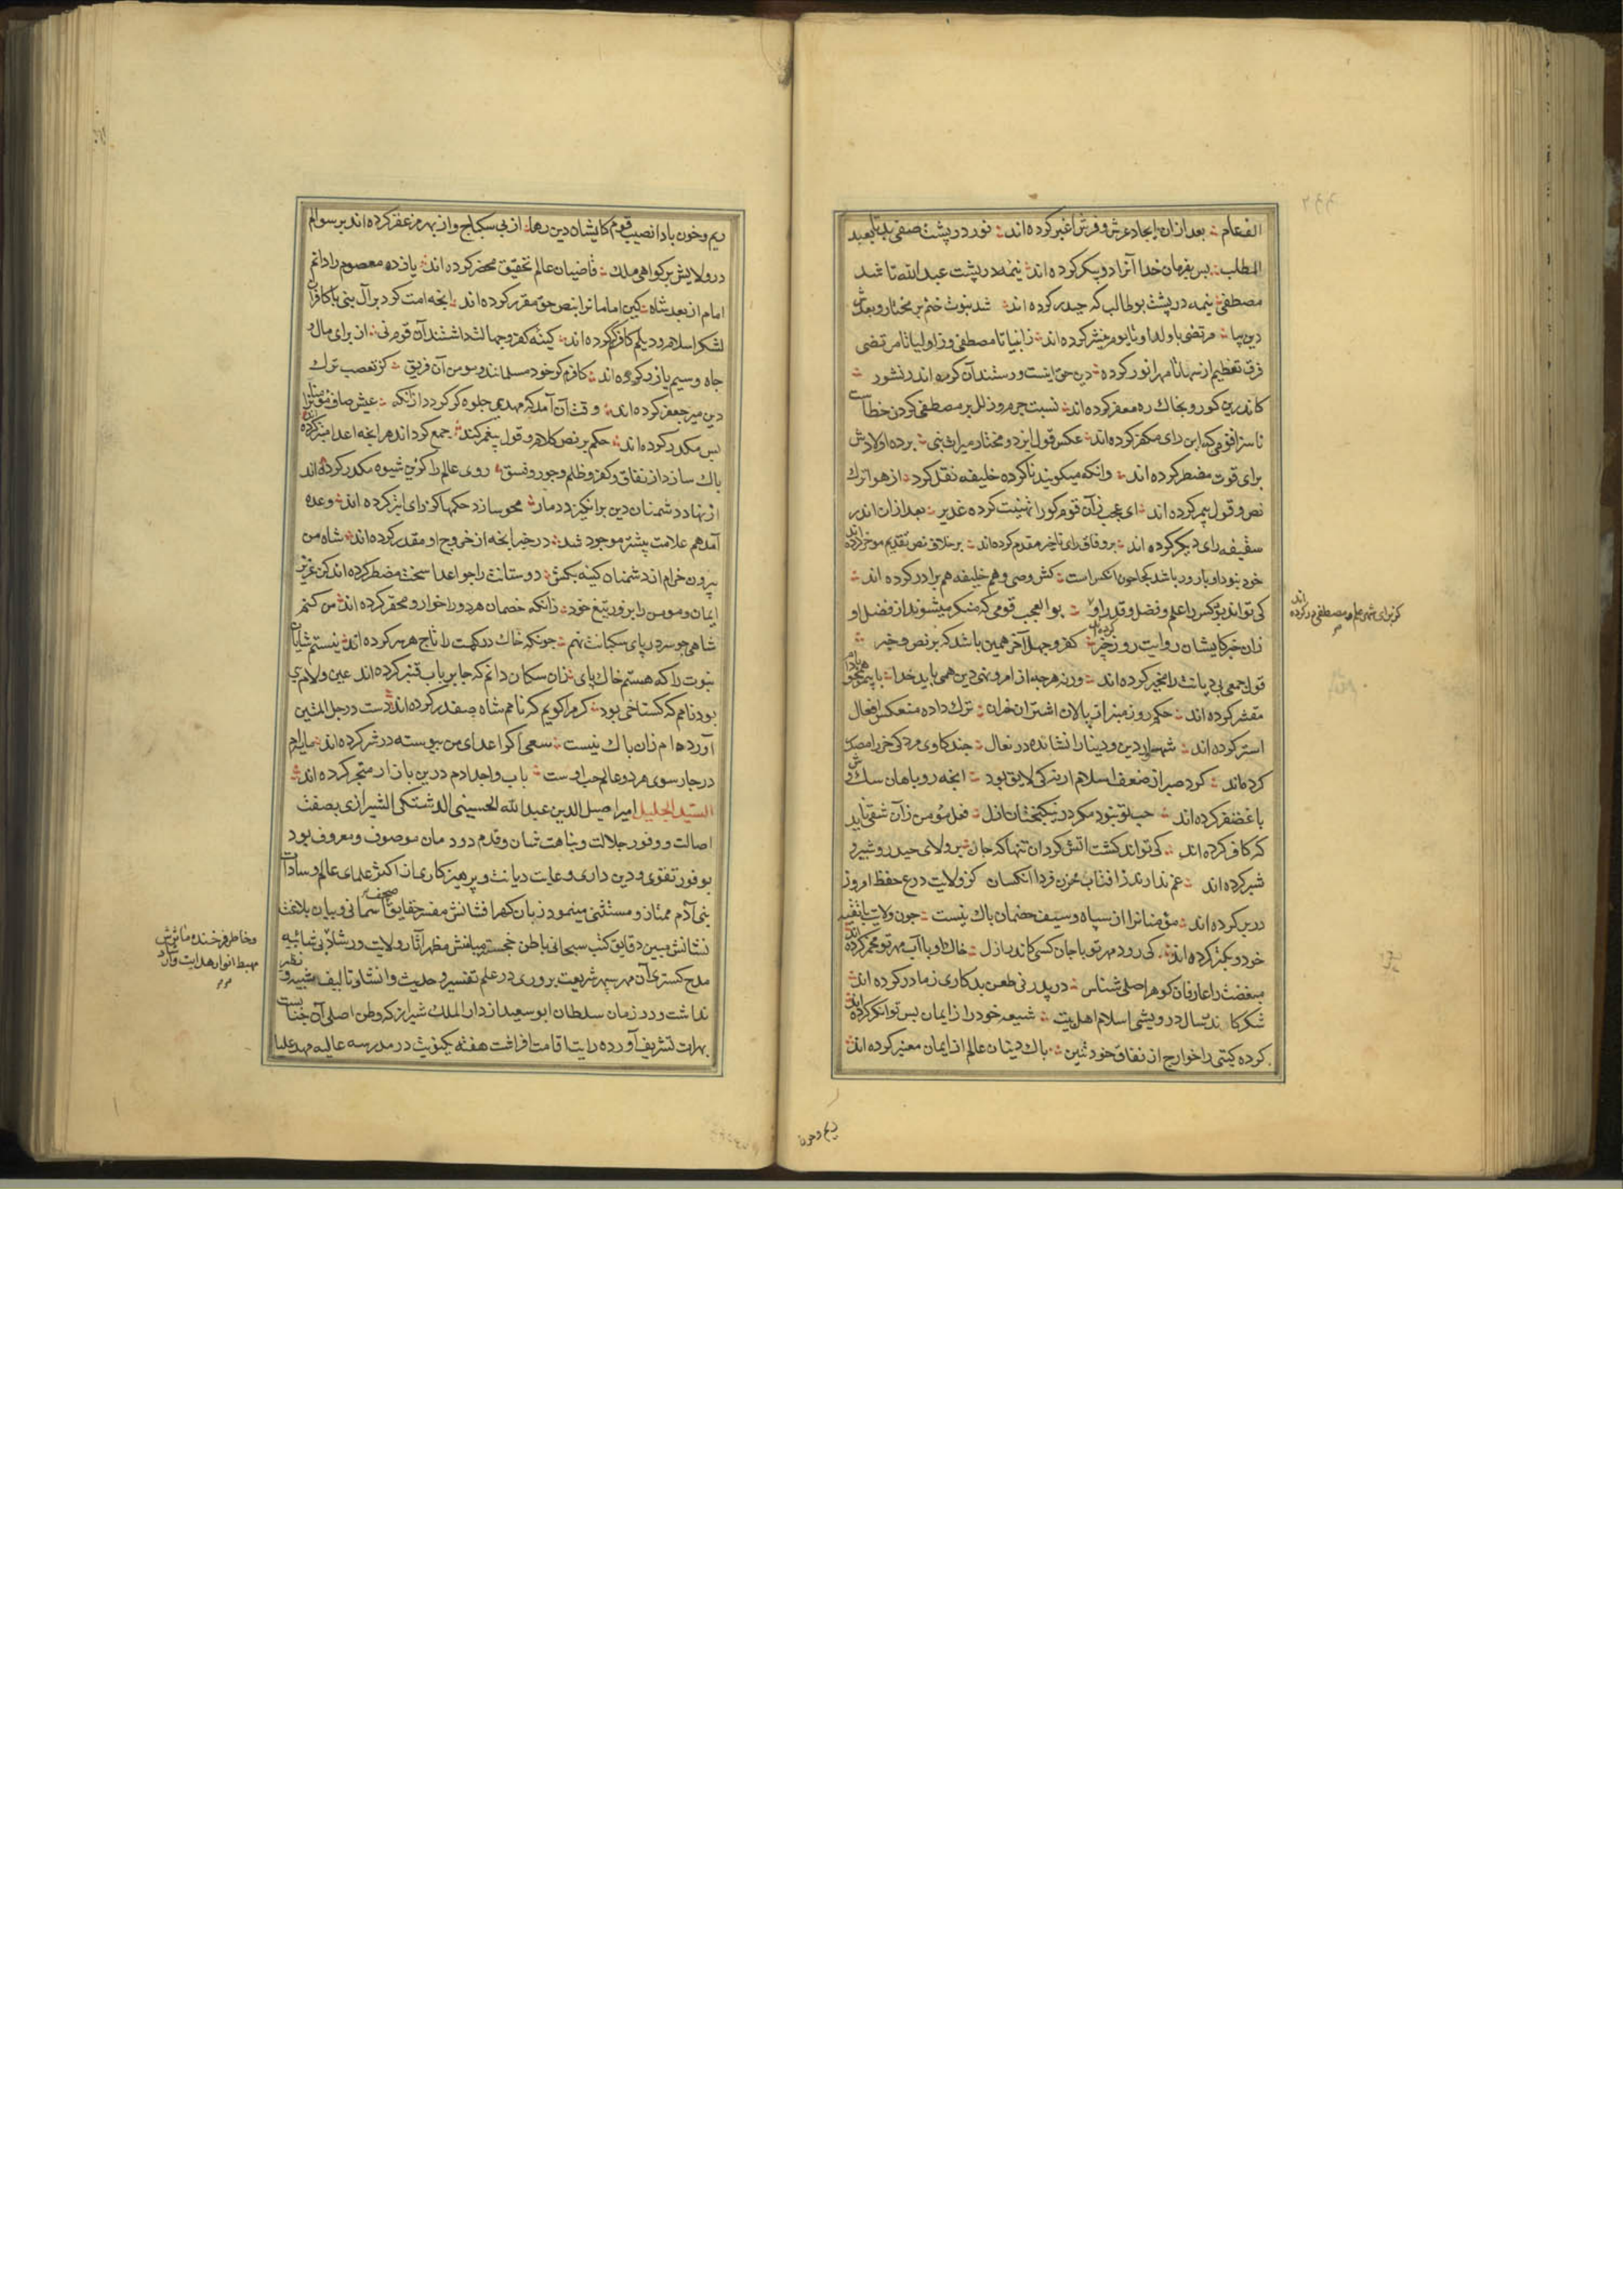 الف عام بعد ازان ایجاد عرش و فرش اغبر کرده اند نور در پشت صفی بد تا بعبد
المطلب بس بفرمان خدا آنرا دو پیکر کرده اند نیمه در پشت عبدالله تا شد
مصطفی نیمه در پشت بوطالب که حیدر کرده اند شد نبوت ختم بر مختار و بعدش
مرتضی با اولاد او تا یوم محشر کرده اند زانبیا تا مصطفی وز اولیا تا مرتضی
فرق تعظیم از سها تا مهر انور کرده دین حق اینست ورستند آن کره اندر نشور
کاندرین کور و بخاک ره معفر کرده اند نسبت جرم و زلل بر مصطفی کردن خطاست
ناسزا قومی که این رای مکفر کرده اند عکس قول ایزد و مختار میراث نبی برده اولادش
برای قوت مضطر کرده اند وانکه میکویند ناکرده خلیفه نقل کرد از هوا ترك
نص و قول پیمبر کرده اند ای عجب زآن قوم کورا تهنیت کرده غدیر بعد ازان اندر
سقیفه رای دیکر کرده اند بر وفاق رای تاخیر مقدم کرده اند بر خلاف نص تقدیم موخر کرده اند
خود نبود او یار ور باشد کجا چون آنکس است کش وصی و هم خلیفه هم برادر کرده اند
کی تواند بود کس را علم و فضل و قدر او بوالعجب قومی که منکر میشوند از فضل او
کز برای شهر علم مصطفی در کرده اند
زان خبر کایشان روایت روز خیبر کرده اند کفر و جهل آخر همین باشد که بر نص و خبر
قول جمعی بی دیانت را مخیر کرده اند ورنه هرچه از امر و نهی دین همی باید خدا با پیمبر
مقشر کرده اند حکم روز منبر از پالان اشتران خران ترك داده منعکس افعال
استر کرده اند شهسوار دین و دنیا را نشانده در نعال چند کاوی مردکی خر را مصدر
کرده اند کرد صبر از ضعف اسلام ار نه کی لایق بود انچه روباهان سك وش
با غضنفر کرده اند حب تو نبود مکر در نیکبختان ازل فعل مؤمن زآن شقی ناید
که کافر کرده اند کی تواند کشت اتش کرد آن تنها که جان بر ولای حیدر و شبیر و
شبر کرده اند غم ندارند زافتاب محزن فردا آنکسان کز ولایت درع حفظ امروز
در بر کرده اند مؤمنانرا از سپاه و سیف خصمان باك نیست چون ولایت
خود و بکتر کرده اند کی رود مهر تو با جان کسی کاندر ازل خاك او با آب مهر تو مخمر کرده اند
مبغضت را عارفان کوهر اصلی شناس در پدر نی طعن بدکاری زمادر کرده اند
شکر کاندر سال درویشی اسلام اهل بیت شیعه خود را ز ایمان بس توانکر کرده اند
کرده کیتی را خوارج از نفاق خود نتین باك دینان عالم از ایمان معنبر کرده اند
ریم و خون
ریم و خون بادا نصیب قوم کایشان دین رها از پی سکباج و از بهر مزعفر کرده اند بر سوالم
در ولایش بر کواهی ملك قاضیان عالم تحقیق محضر کرده اند یازده معصوم را دانم
امام از بعد شاه کین امامانرا بنص حق مقرر کرده اند انچه امت کرد بر آل نبی با کافران
لشکر اسلام و دیلم کافرم گر کرده اند کینه کفر و جهالت داشتند آن قوم نی از برای مال و
جاه و سیم یا زر کرده اند کافرم کر خود مسلمانند و مومن آن فریق کز تعصب ترك
دین میر جعفر کرده اند وقت آن آمد که مهدی جلوه کر کردد ازانکه عیش صاف مؤمنانرا
بس مکدر کرده اند حکم بر نص کلام و قول پیغمبر کند جمع کرداند هر انچه اعدا مبتر کرده اند
باك سازد از نفاق و کفر و ظلم و جور و فسق روی عالم را کزین شیوه مکدر کرده اند
از نهاد دشمنان دین برانکیزد دمار محو سازد حکمها کز رای ابتر کرده اند وعده
آمد هم علامت پیشتر موجود شد در خبر انچه از خروج او مقدر کرده اند شاه من
بیرون خرام از دشمنان کینه بکش دوستانت را چو اعدا سخت مضطر کرده اند کن عزیز
ایمان و مومن را بزور تیغ خود زانکه خصمان هر دو را خوار و محقر کرده اند من کنم
شاهی چو سر در پای سکبانت نهم چونکه خاك درکهت را تاج هر سر کرده اند نیستم شایان
نبوت را که هستم خاك پای زان سکان دانم که جا بر باب قنبر کرده اند عین و لام و ی
بود نامم که کستاخی بود کر مرا کویم که نامم شاه صفدر کرده اند دست در حبل المتین
آورده ام زان باك نیست سعی اکر اعدای من پیوسته در شر کرده اند مایه ام
در چارسوی هر دو عالم حب اوست باب و اجدادم درین بازار متجر کرده اند
السید الجلیل امیر اصیل الدین عبدالله الحسینی الدشتکی الشیرازی بصفت
اصالت و وفور جلالت و نباهت شان و قدم دودمان موصوف و معروف بود
بوفور تقوی و دین داری و غایت دیانت و پرهیزکاری از اکثر علمای عالم و سادات
بنی آدم ممتاز و مستثنی مینمود زبان کهر افشانش مفسر حقایق صحف آسمانی و بیان بلاغت
نشانش مبین دقایق کتب سبحانی باطن خجسته میامنش مظهر آثار ولایت و رشاد بی شائبه
و خاطر فرخنده مآثرش
مهبط انوار هدایت و ارشاد
مدح کستری آن مهر سپهر شریعت پروری در علم تفسیر و حدیث و انشا و تالیف شبیه و نظیر
نداشت و در زمان سلطان ابو سعید از دار الملك شیراز که وطن اصلی آن جناب است
بهرات تشریف آورده رایت اقامت افراشت هفته یکنوبت در مدرسه عالیه مهد علیا